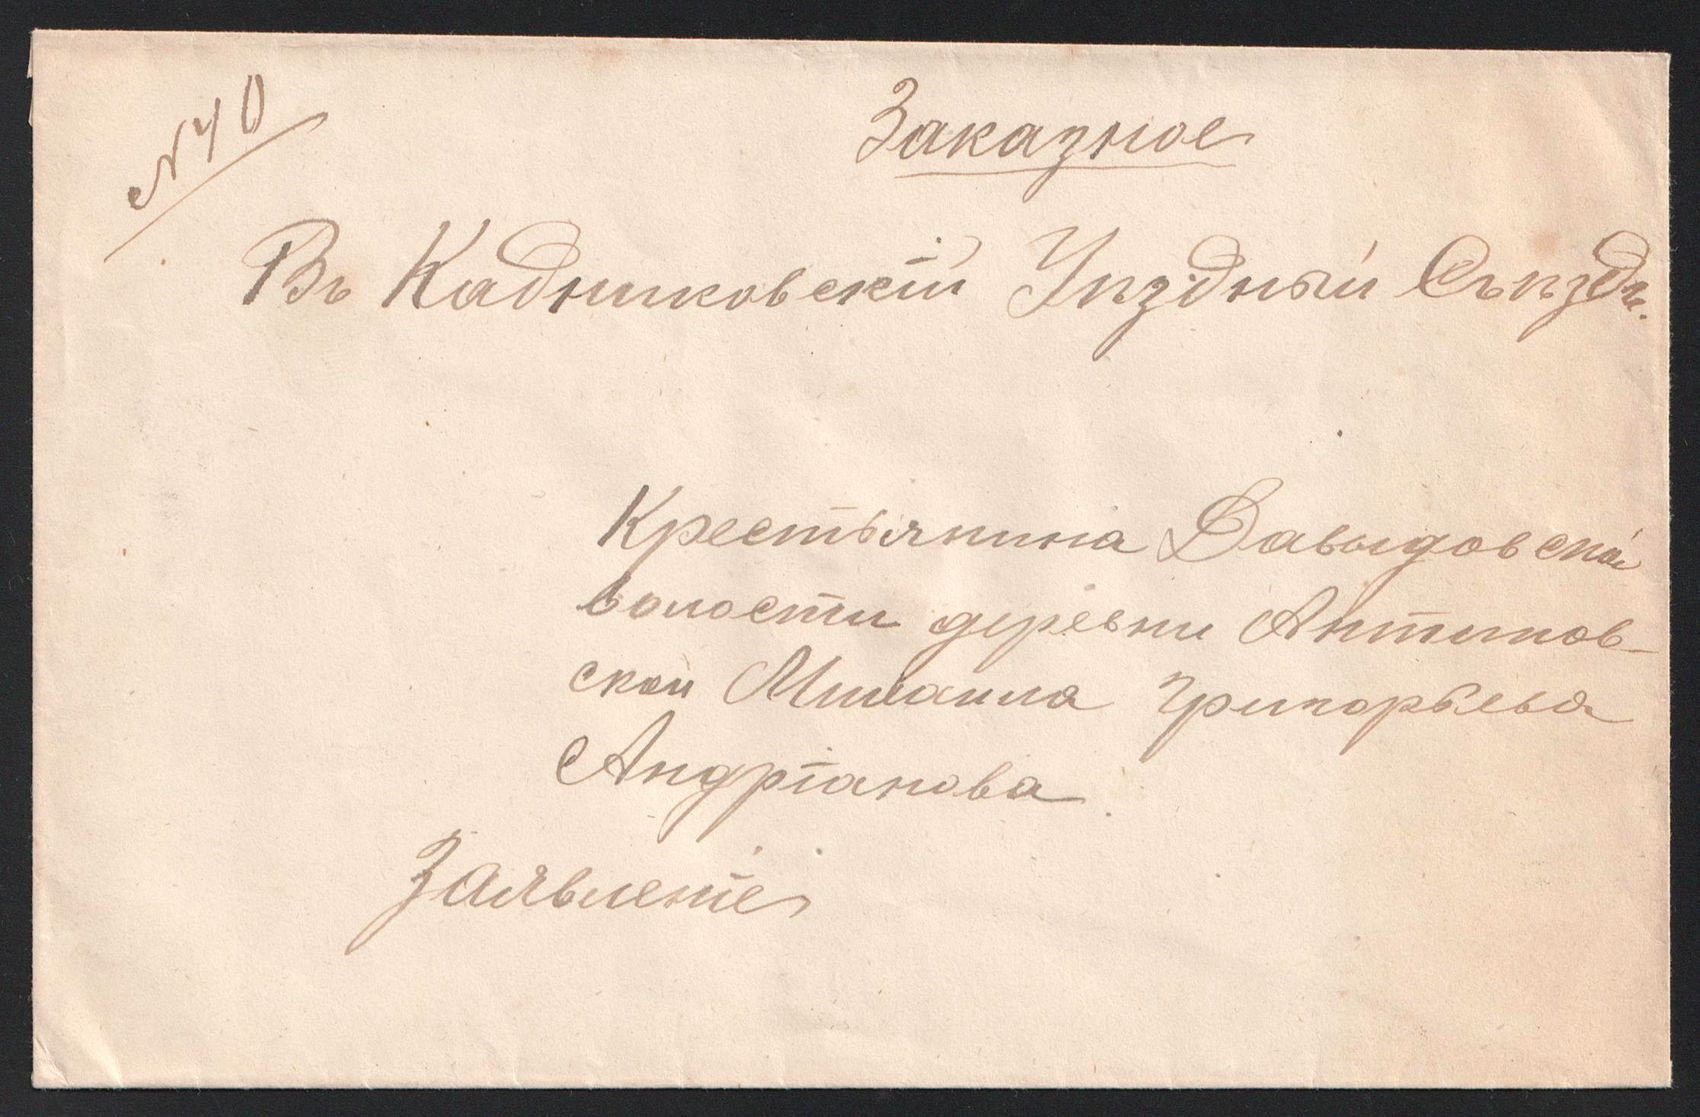 № 40
Заказное
Въ Кадниковскій Уѣздный Съѣздъ.
Крестьянина Давыдовской
волости деревни Антипов-
ской Михаила Григорьева
Андріанова
Заявленіе